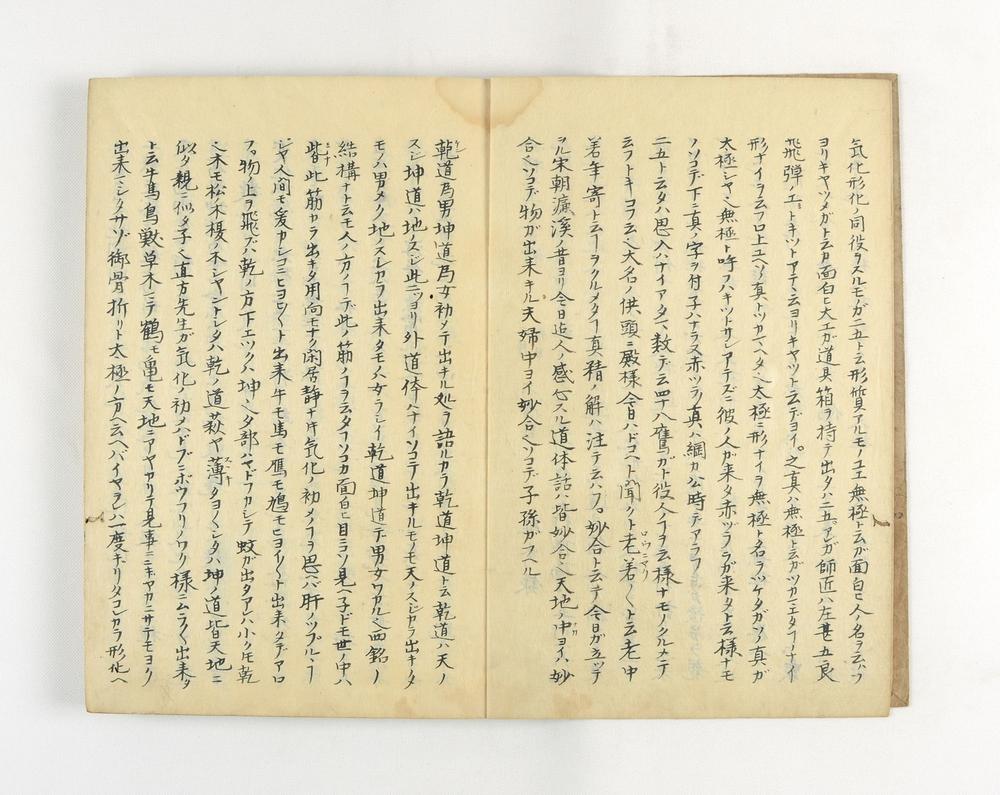 気化形化ノ同役ヲスルモガ二五ト云形質アルモノユエ無極ト云ガ面白ヒ人ノ名ヲ云フ
ヨリキヤツメガト云カ面白ヒ大工ガ道具箱ヲ持テ出タハ二五アレガ師匠ハ左甚五良
飛弾ノ工トキツトアテヽ云ヨリキヤツト云デヨイ。之真ハ無極ト云ガツカマエタフノナイ
形ナイヲ云フ口上ユヘソノ真トツカマヘタ之太極ニ形ナイヲ無極ト名ヲツケタガソノ真ガ
太極シヤ之無極ト呼フハキツトサシアテズニ彼ノ人ガ来タ赤ツラガ来タト云様ナモ
ノソコデ下ニ真ノ字ヲ付子ハナラヌ赤ツラノ真ハ綱カ公時テアラフ
二五ト云タハ思入ハナイアタマ数デ云四十八鷹ガト役人ヲ云様ナモノクルメテ
云フトキコフ云之大名ノ供頭ニ殿様今日ハドコヘト聞クト老若ノヽト云老中
若年寄ト云フヲクルメタフ真精ノ解ハ注テ云ハフ。妙合ト云テ今日ガ立ツテ
ヲル宋朝濂溪ノ昔ヨリ今日迄人ノ感心スル道体話ハ皆妙合之天地ノ中ヨイハ妙
合之ソコデ物ガ出来キル夫婦中ヨイ妙合之ソコデ子孫ガフヘル
乾道為男坤道為女初メテ出キル処ヲ語ルカラ乾道坤道ト云乾道ハ天ノ
スシ坤道ハ地ノスシ此二ツヨリ外道体ハナイソコテ出キルモノモ天ノスシカラ出キタ
モノハ男メク地ノスシカラ出来タモノハ女ラシイ乾道坤道デ男女ワカル之西銘ノ
結構ナト云モ人ノ方ノフデ此ノ筋ノフヲ云タフソコカ面白ヒ目ニコソ見ヘ子ドモ世ノ中ハ
皆此筋カラ出キタ用向モナク閑居静ナキ気化ノ初メノフヲ思ヘバ肝ノツブルヽフ
ジヤ人間モ爰カシコニヒヨロ〱ト出来牛モ馬モ鷹モ鳩モヒヨロ〱ト出来タデアロ
フ。物ノ上ヲ飛ブハ乾ノ方下エツクハ坤之夕部ハヤドフカシテ蚊ガ出タアレハ小クモ乾
之木モ松ノ木榎ノ木シヤントシタハ乾ノ道萩ヤ薄タヨ〱シタハ坤ノ道皆天地ニ
似タ親ニ似タ子之直方先生ガ気化ノ初メハドブニボウフリノワク様ニムラ〱出来タ
ト云牛馬鳥獣草木ニテ鶴モ亀モ天地ニアヤカリテ見事ニニキヤカニサテモヨク
出来マシタサゾ御骨折リト太極ノ方ヘ云ヘバイヤヲレハ一度キリタコレカラ形化ヘ